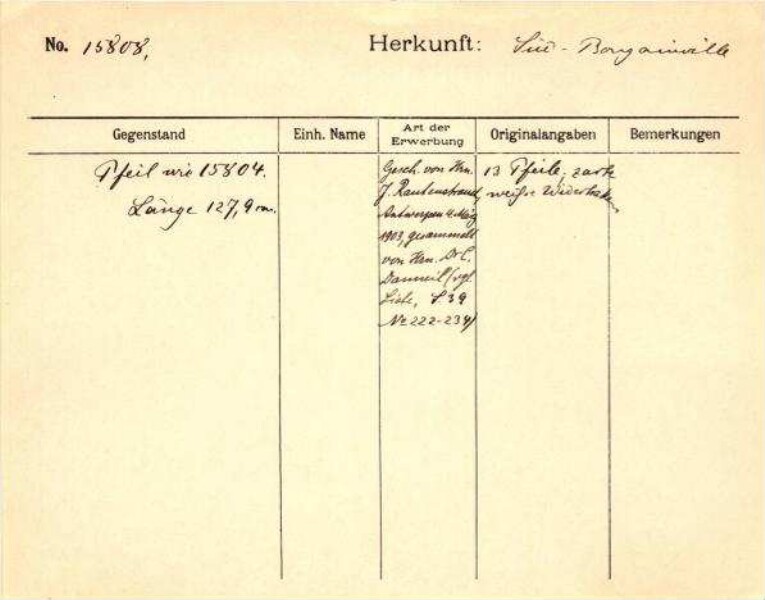 No. 15808,
Herkunft: Süd-Bougainville
Gegenstand
Einh. Name
Art der
Erwerbung
Originalangaben
Bemerkungen
Pfeil wie 15804.
Länge 127,9 cm.
Gesch. von Hrn.
J. Rautenstrauch,
Antwerpen 4. März
1903, gesammelt
von Hrn. Dr C.
Danneil (vgl.
Liste, S 39
№ 222-234)
13 Pfeile, zarte
weisse Widerhaken